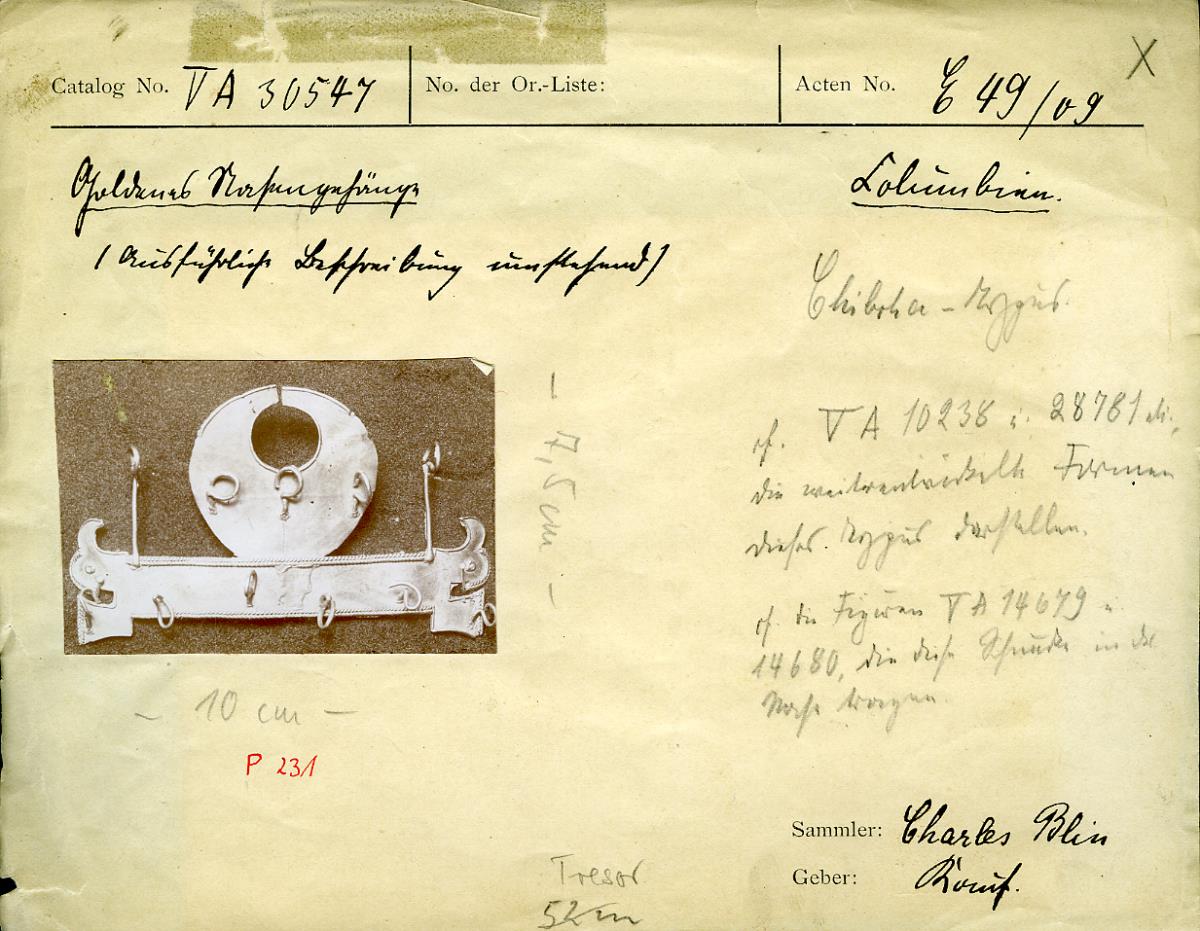 Catalog No. VA 30547
No. der Or.-Liste:
Acten No. E 49/09
X
Goldenes Nasengehänge
Columbien.
(Ausführliche Beschreibung umstehend)
Chibcha-Typus.
cf. VA 10238 u. 28781
die weiterentwickelte Formen
dieses Typus darstellen.
cf. die Figuren VA 14679 u.
14680, die diese Schmucke in der
Nase tragen.
- 7,5 cm -
- 10 cm -
P 231
Sammler: Charles Blin
Geber: Kauf.
Tresor